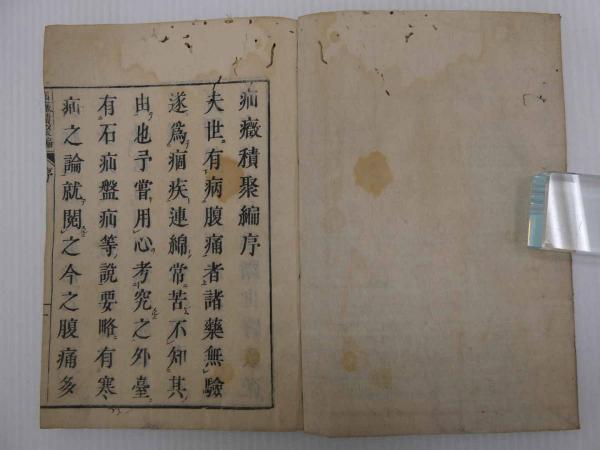 疝癥積聚編序
夫世有病腹痛者諸藥無驗
遂爲痼疾連綿常苦不知其
由也予嘗用心考究之外臺
有石疝盤疝等說要略有寒
疝之論就閱之今之腹痛多
序